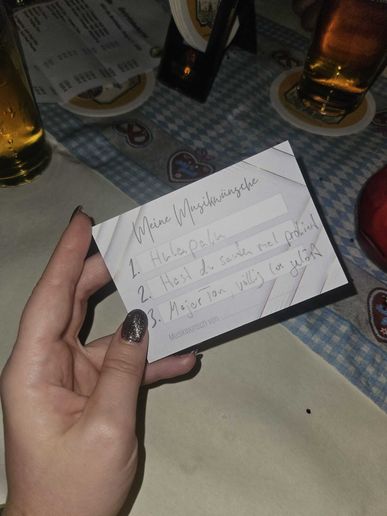 Meine Musikwünsche
1. Hulapalu
2. Hast du schon mal probiert
3. Major Tom, völlig los gelöst
Musikwunsch von: